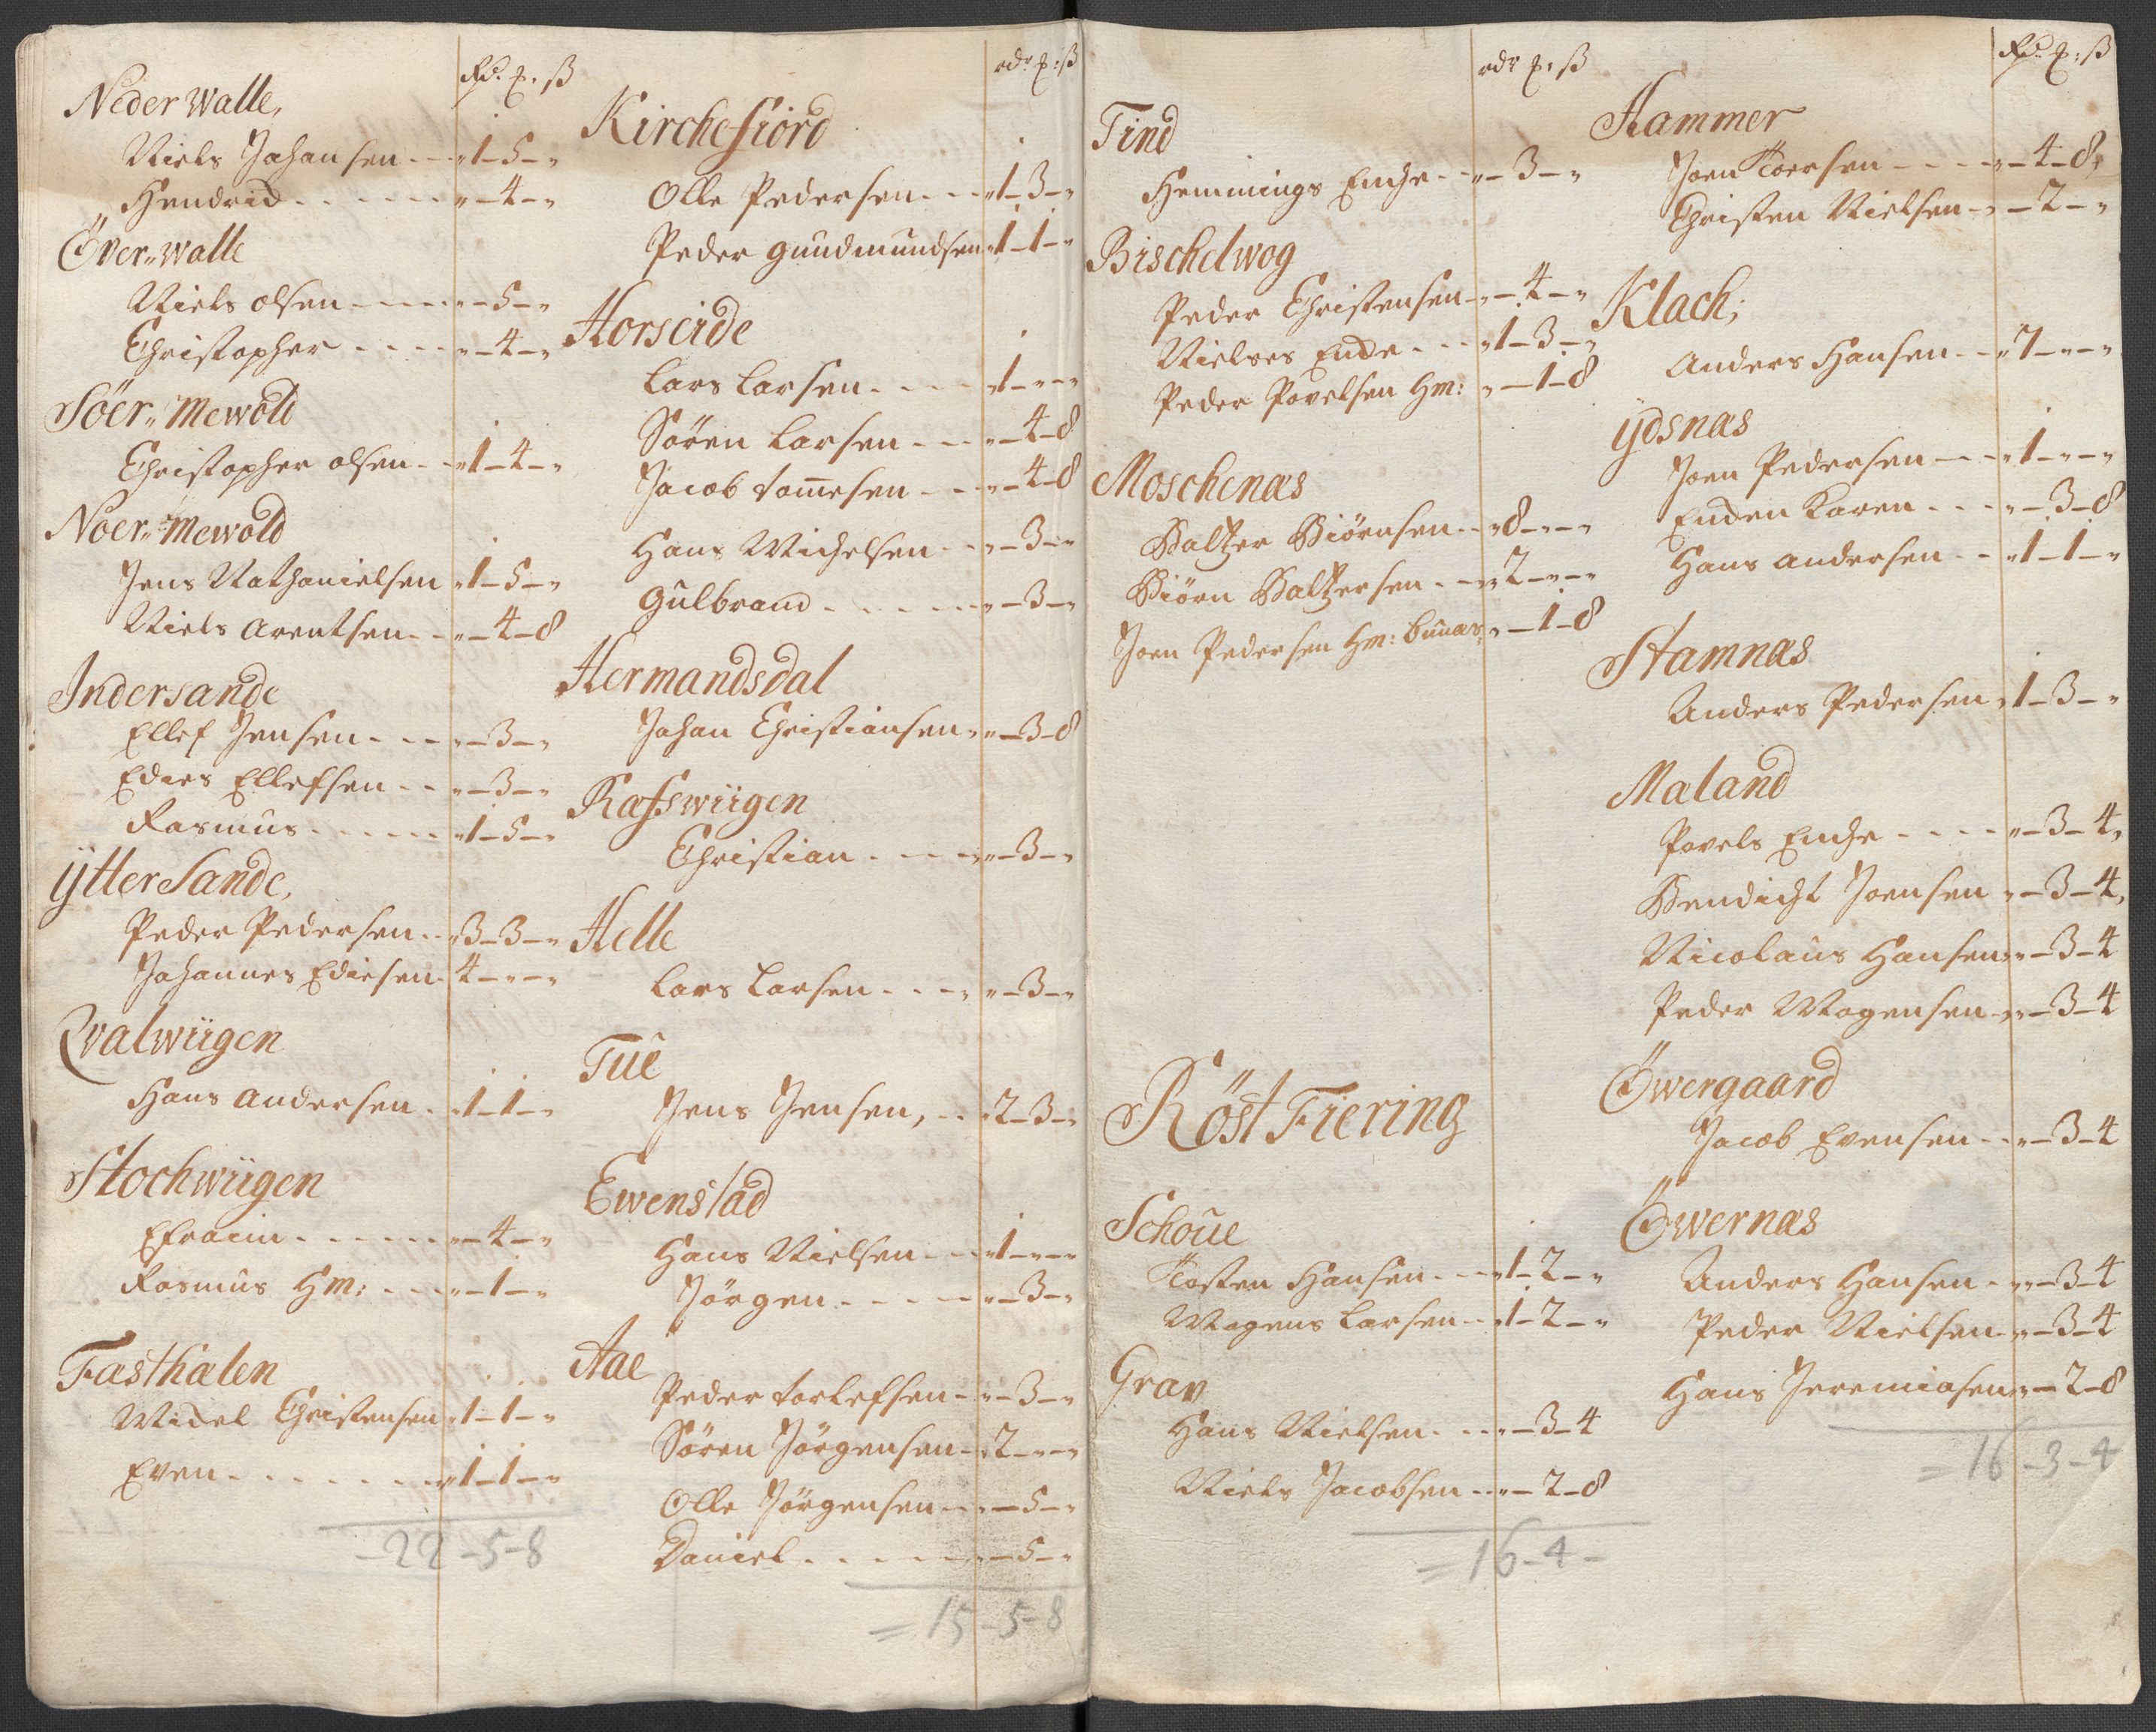 Rd. ₻. ß
Neder Walle,
Niels Johansen - - „1-5-„
„ Hendrid - - - - „-4-„
Över„ Walle
Niels olsen - - - - „-5-„
Christopher - - - - „-4-„
Söer„ Mewold
Christopher olsen - - „1-4-„
Noer„ Mewold
Jens Nathanielsen „1-5-„
Niels Arentsen - - „-4-8
Indersande
Ellef Jensen - - - „-3-„
Edies Ellefsen - - „-3-„
Rasmus - - - - - „1-5-„
ÿtter Sande,
Peder Pedersen - - „3-3-„
Johannes Ediesen - 4-„-„
Qvalwiigen
Hans Andersen - „1-1-„
Stochwiigen
Efraim - - - - - „-4-„
Rasmus Hm: - - - „-1-„
Fasthalen
Midel Christensen „1-1-„
Even - - - - - - „1-1-„
-22-5-8
rdr ₻: ß
Kirchefiord
Olle Pedersen - - - „1-3-„
Peder Gundmundsen „1-1-„
Horseide
Lars Larsen - - - - „1-„-„
Sören Larsen - - - „-4-8
Jacob tom̄esen - - - „-4-8
Hans Michelsen - - „-3-„
Gulbrand - - - - - „-3-„
Hermandsdal
Johan Christiansen „-3-8
Rasswiigen
Christian - - - - „-3-„
Helle
Lars Larsen - - - „-3-„
Tue
Jens Jensen, - - „2-3-„
Ewenstad
Hans Nielsen - - - „1-„-„
Jörgen - - - - - „-3-„
Aae
Peder torlefsen - - „-3-„
Sören Jörgensen - „2-„-„
Olle Jörgensen - - „-5-„
Daniel - - - - - „-5-„
=15-5-8
rdr ₻: ß
Tind
Hemmings Enche - - „-3-„
Bischelwog
Peder Christensen - „-4-„
Nielses Ende - - - „1-3-„
Peder Povelsen Hm: „-1-8
Moschenæs
Baltzer Biörnsen - - „8-„-„
Biörn Baltzersen - - „2-„-„
Joen Pedersen Hm: bunæs „-1-8
Röst Fiering
Schoue
Tosten Hansen - - - „1-2-„
Mogens Larsen - - „1-2-„
Grav
Hans Nielsen - - - „-3-4
Niels Jacobsen - - „-2-8
=16-4-
Rd. ₻: ß
Hammer
Joen Toersen - - - - „-4-8„
Christen Nielsen - „-2-„
Klach;
Anders Hansen - - „7-„-„
ÿdsnæs
Joen Pedersen - - - „1-„-„
Enden Karen - - - „-3-8
Hans Andersen - - „1-1-„
Stamnæs
Anders Pedersen „1-3-„
Maland
Povels Enche - - - - „-3-4,
Bendicht Joensen „-3-4,
Nicolaus Hansen „-3-4
Peder Mogensen - „-3-4
Öwergaard
Jacob Evensen - - „-3-4
Öwernæs
Anders Hansen - „-3-4
Peder Nielsen - „-3-4
Hans Jeremiasen „-2-8
=16-3-4